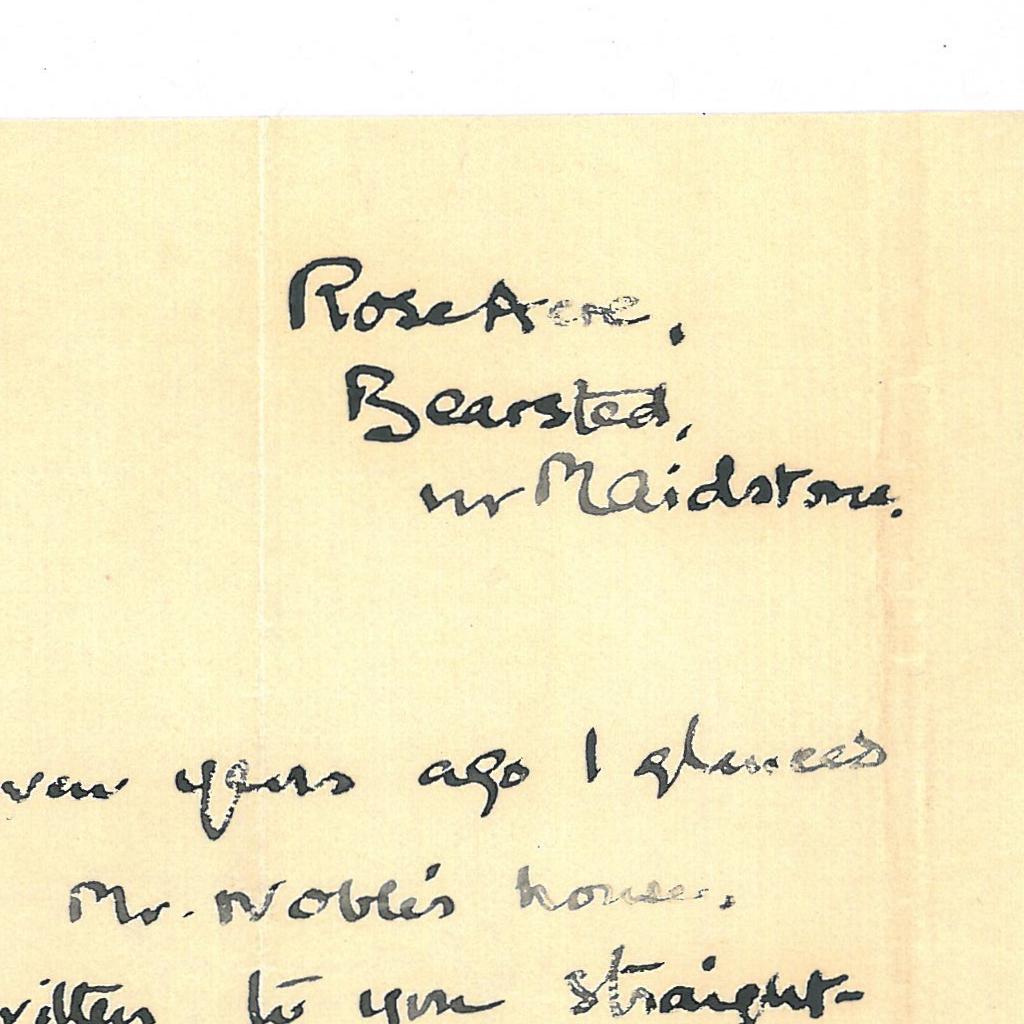 Rose Acre,
Bearsted,
nr Maidstone.
years ago I glanced
Mr. Noble's house.
written to you straight-